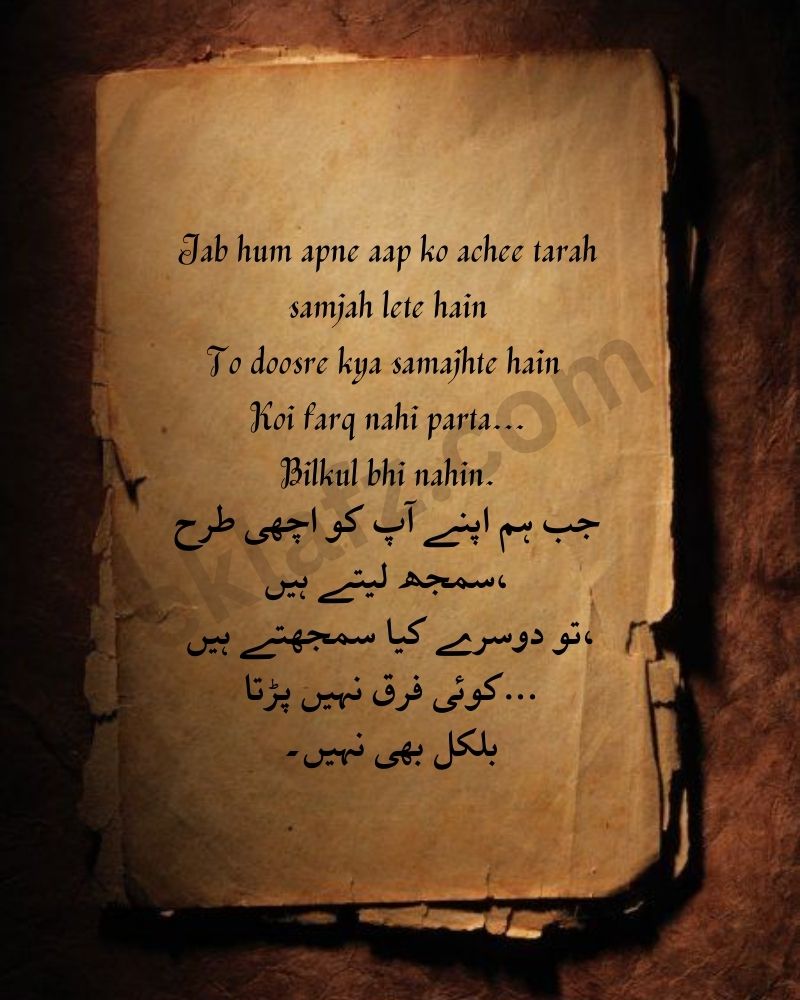 Jab hum apne aap ko achee tarah
samjah lete hain
To doosre kya samajhte hain
Koi farq nahi parta...
Bilkul bhi nahin.
جب ہم اپنے آپ کو اچھی طرح
سمجھ لیتے ہیں،
تو دوسرے کیا سمجھتے ہیں،
کوئی فرق نہیں پڑتا...
بلکل بھی نہیں۔